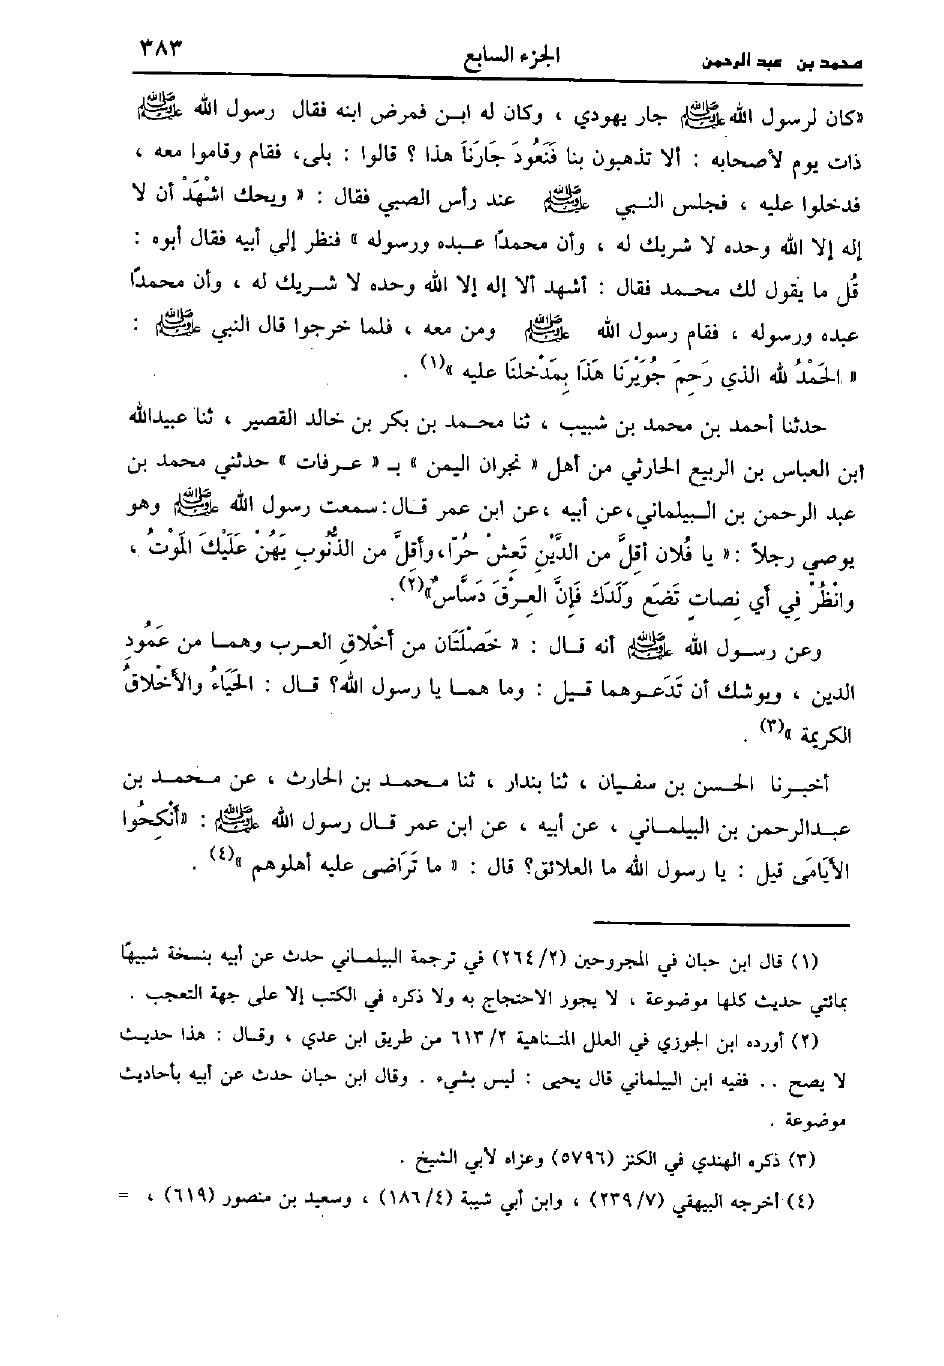 محمد بن عبد الرحمن الجزء السابع ٣٨٣
«كان لرسول الله ﷺ جار يهودي ، وكان له ابن فمرض ابنه فقال رسول الله ﷺ
ذات يوم لأصحابه : ألا تذهبون بنا فَنَعُودَ جَارَنَا هذا ؟ قالوا : بلى، فقام وقاموا معه ،
فدخلوا عليه ، فجلس النبي ﷺ عند رأس الصبي فقال : « ويحك اشْهَدْ أن لا
إله إلا الله وحده لا شريك له ، وأن محمدًا عبده ورسوله » فنظر إلى أبيه فقال أبوه :
قُل ما يقول لك محمد فقال : أشهد ألا إله إلا الله وحده لا شريك له ، وأن محمدًا
عبده ورسوله ، فقام رسول الله ﷺ ومن معه ، فلما خرجوا قال النبي ﷺ :
« الحَمْدُ لله الذي رَحِمَ جُوَيْرَنَا هَذَا بِمَدْخلنَا عليه »(١) .
حدثنا أحمد بن محمد بن شبيب ، ثنا محمد بن بكر بن خالد القصير ، ثنا عبيدالله
ابن العباس بن الربيع الحارثي من أهل « نجران اليمن » بـ « عرفات » حدثني محمد بن
عبد الرحمن بن البيلماني، عن أبيه ، عن ابن عمر قال: سمعت رسول الله ﷺ وهو
يوصي رجلاً : « يا فُلان أقلَّ من الدَّيْنِ تَعِشْ حُرًّا، وأقلَّ من الذُّنُوبِ يَهُنْ عَلَيْكَ المَوْتُ ،
وانْظُرْ في أي نصابٍ تَضَع وَلَدَكَ فَإِنَّ العِرْقَ دَسَّاسٌ»(٢).
وعن رسول الله ﷺ أنه قال : « خَصْلَتَان من أخْلاقِ العرب وهما من عَمُودِ
الدين ، ويوشك أن تَدَعوهما قيل : وما هما يا رسول الله؟ قال : الحَيَاءُ والأخْلاقُ
الكريمة »(٣) .
أخبرنا الحسن بن سفيان ، ثنا بندار ، ثنا محمد بن الحارث ، عن محمد بن
عبدالرحمن بن البيلماني ، عن أبيه ، عن ابن عمر قال رسول الله ﷺ : «أَنْكِحُوا
الأيَامَى قيل : يا رسول الله ما العلائق؟ قال : « ما تَرَاضى عليه أهلوهم »(٤) .
(١) قال ابن حبان في المجروحين (٢٦٤/٢) في ترجمة البيلماني حدث عن أبيه بنسخة شبيهًا
بمائتي حديث كلها موضوعة ، لا يجوز الاحتجاج به ولا ذكره في الكتب إلا على جهة التعجب .
(٢) أورده ابن الجوزي في العلل المتناهية ٦١٣/٢ من طريق ابن عدي ، وقال : هذا حديث
لا يصح .. ففيه ابن البيلماني قال يحيى : ليس بشيء . وقال ابن حبان حدث عن أبيه بأحاديث
موضوعة .
(٣) ذكره الهندي في الكنز (٥٧٩٦) وعزاه لأبي الشيخ .
(٤) أخرجه البيهقي (٢٣٩/٧) ، وابن أبي شيبة (١٨٦/٤) ، وسعيد بن منصور (٦١٩) ، =